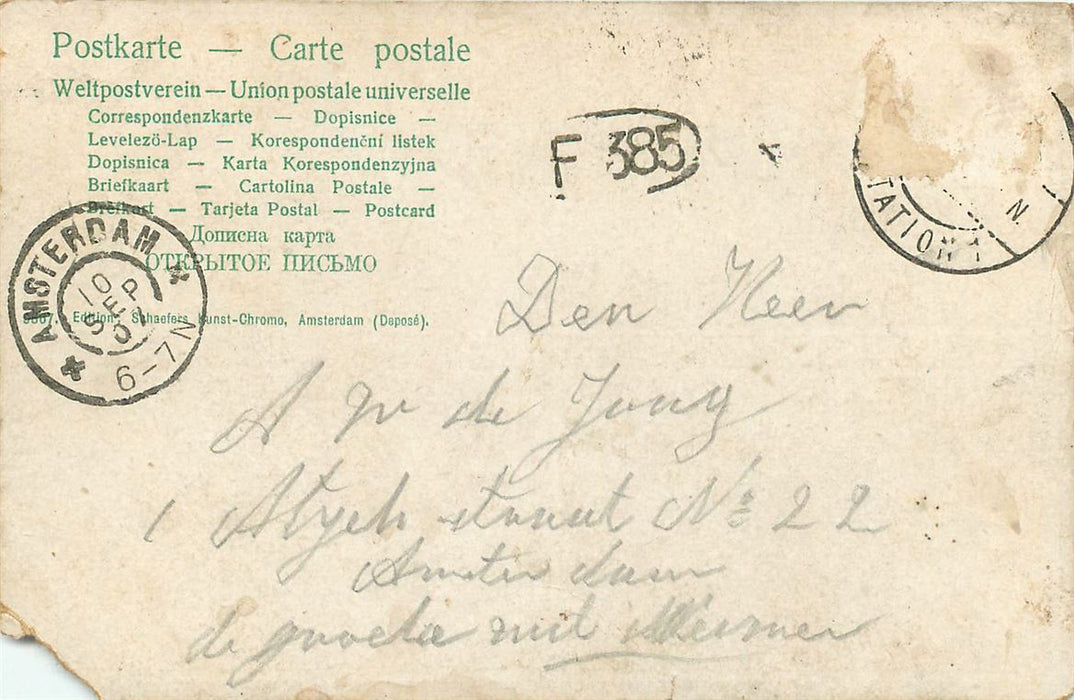 Postkarte — Carte postale
Weltpostverein — Union postale universelle
Correspondenzkarte — Dopisnice —
Levelező-Lap — Korespondenční listek
Dopisnica — Karta Korespondenzyjna
Briefkaart — Cartolina Postale —
Brefkort — Tarjeta Postal — Postcard
Дописна карта
ОТКРЫТОЕ ПИСЬМО
Edition Schaefers Kunst-Chromo, Amsterdam (Deposé).
AMSTERDAM
10 SEP 07
6-7N
F 385
TATION 1
N.
Den Heer
A W de Jong
straat No 22
Amsterdam
de groete uit